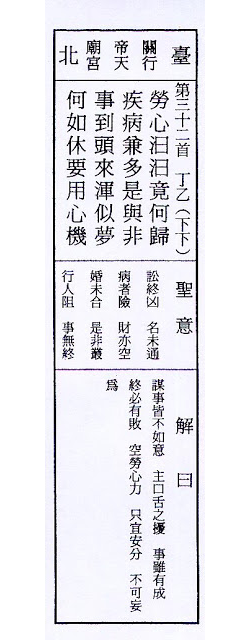 臺北
關帝廟
行天宮
第三十二首 丁乙(下下)
勞心汩汩竟何歸
疾病兼多是與非
事到頭來渾似夢
何如休要用心機
聖意
訟終凶 名未通
病者險 財亦空
婚未合 是非叢
行人阻 事無終
解曰
謀事皆不如意 主口舌之擾 事雖有成
終必有敗 空勞心力 只宜安分 不可妄
爲